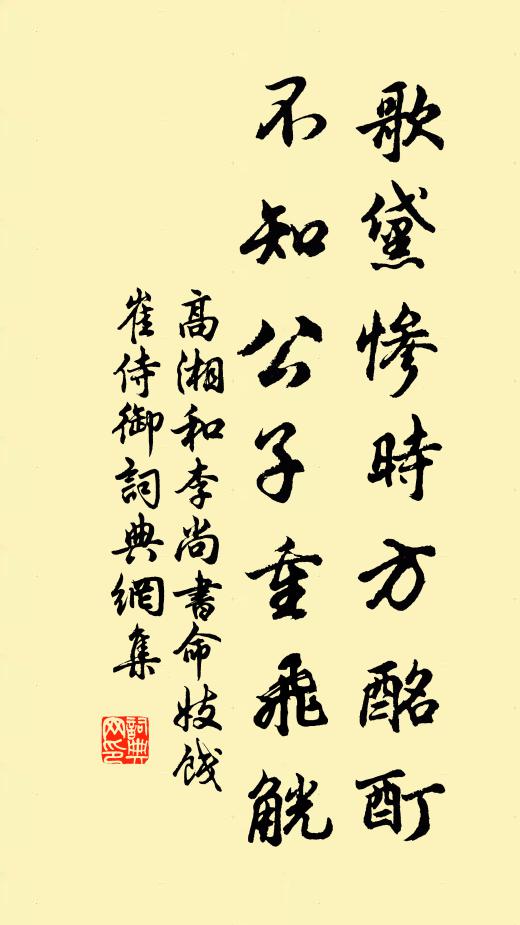 歌黛慘時方酩酊
不知公子重飛觥
高湘和李尚書命妓餞
崔侍御詞典網集
詞典網印